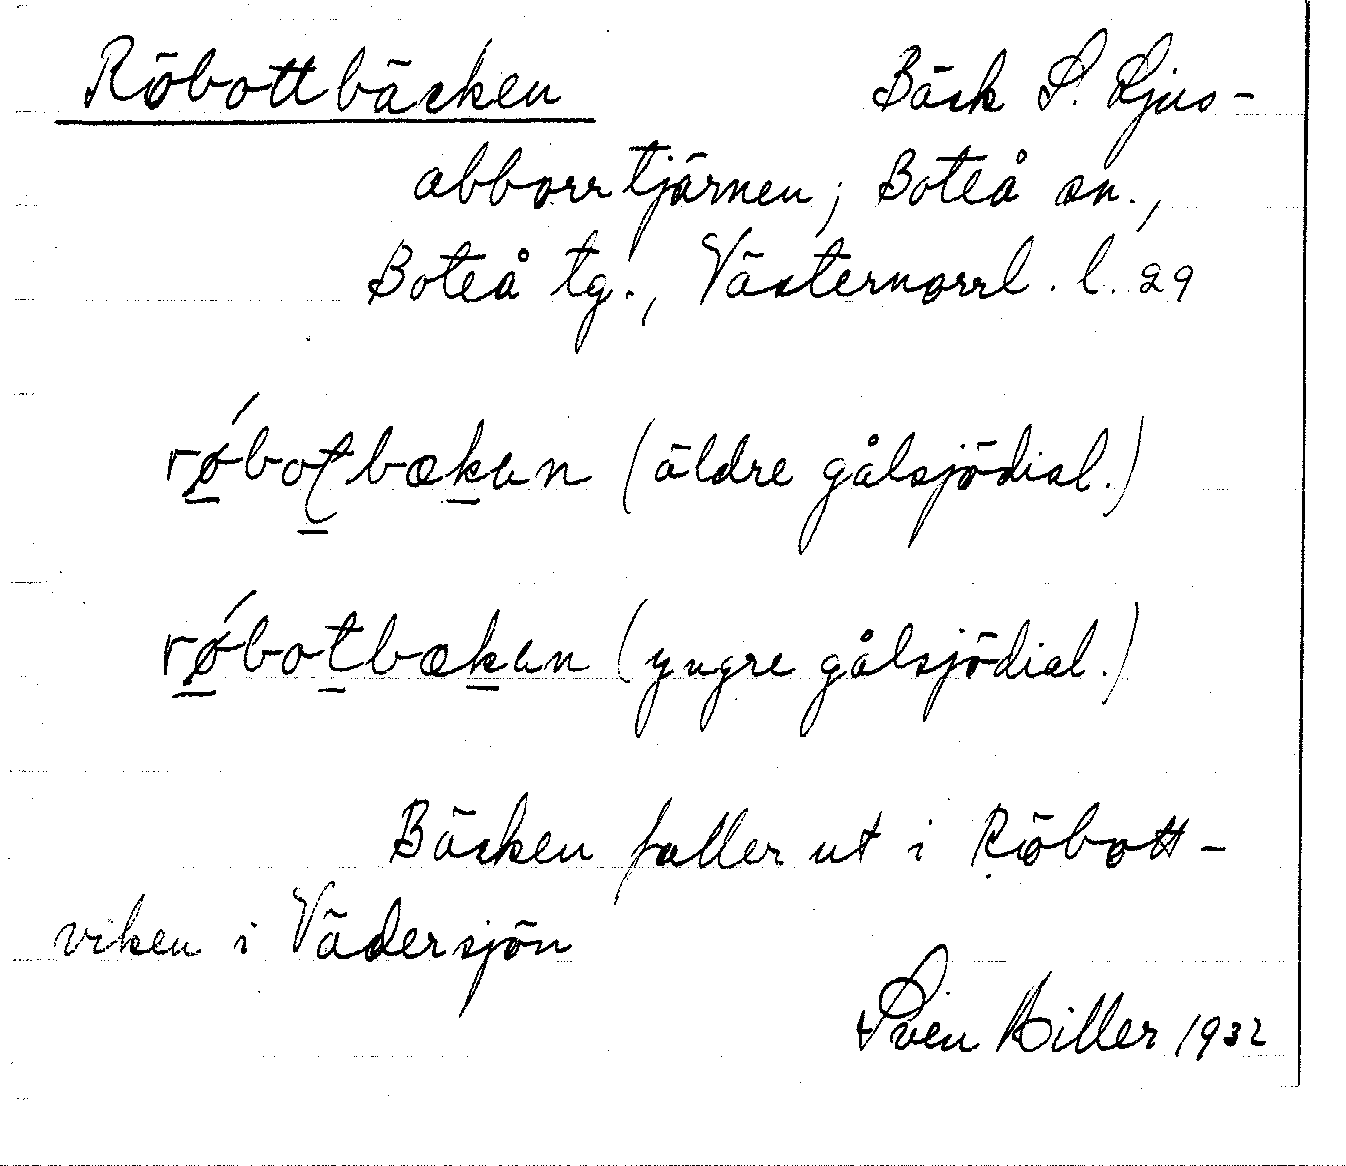 Röbottbäcken Bäck S. Ljus-
abborrtjärnen; Boteå sn.,
Boteå tg., Västernorrl. l. 29
rǿbotbækan (äldre gålsjödial.)
rǿbotbækan (yngre gålsjödial.)
Bäcken faller ut i Röbott-
viken i Vädersjön
Sven Hiller 1932